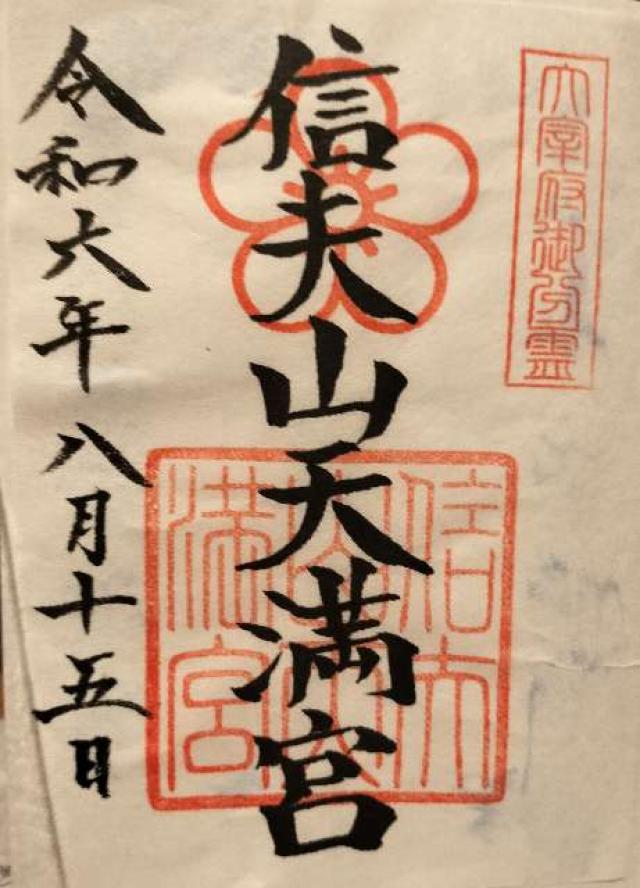 太宰府御分霊
信夫山天満宮
信夫山天満宮
令和六年八月十五日